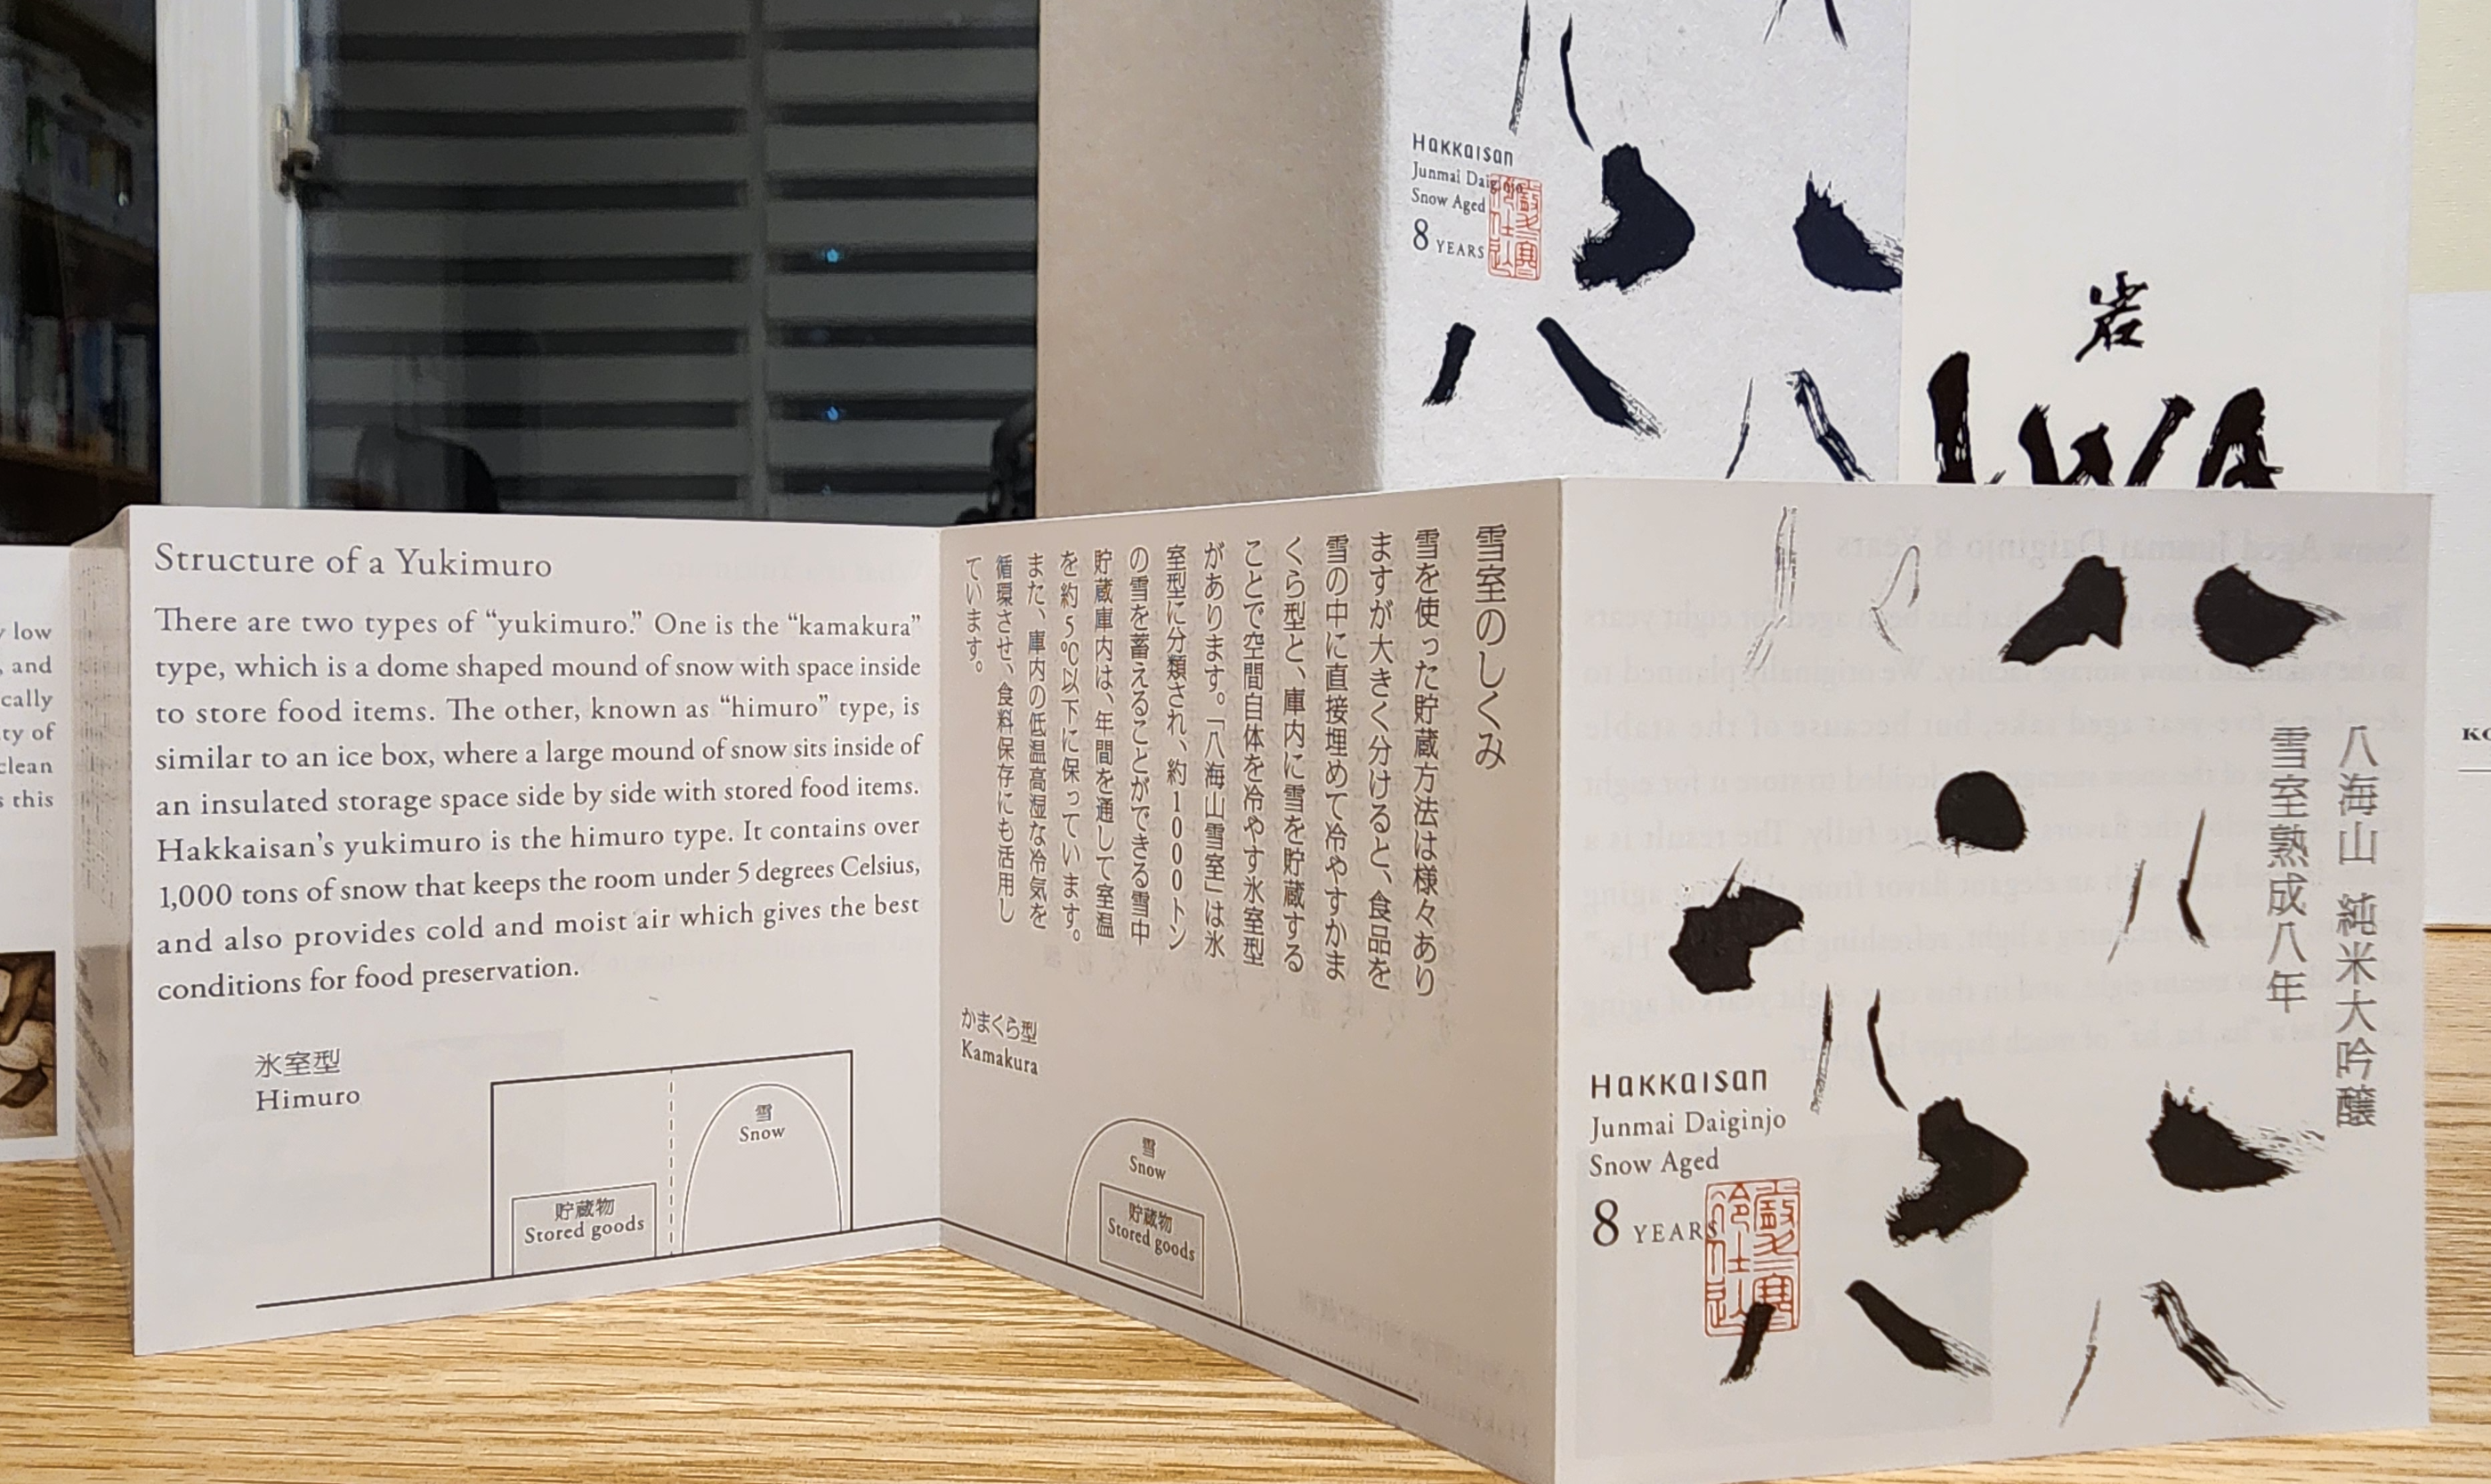 Hakkaisan
Junmai Daiginjo
Snow Aged
8 YEARS
岩
IWA
low
and
cally
ty of
clean
this
Structure of a Yukimuro
There are two types of “yukimuro.” One is the “kamakura”
type, which is a dome shaped mound of snow with space inside
to store food items. The other, known as “himuro” type, is
similar to an ice box, where a large mound of snow sits inside of
an insulated storage space side by side with stored food items.
Hakkaisan’s yukimuro is the himuro type. It contains over
1,000 tons of snow that keeps the room under 5 degrees Celsius,
and also provides cold and moist air which gives the best
conditions for food preservation.
氷室型
Himuro
雪
Snow
貯蔵物
Stored goods
雪室のしくみ
雪を使った貯蔵方法は様々あり
ますが大きく分けると、食品を
雪の中に直接埋めて冷やすかま
くら型と、庫内に雪を貯蔵する
ことで空間自体を冷やす氷室型
があります。「八海山雪室」は氷
室型に分類され、約1000トン
の雪を蓄えることができる雪中
貯蔵庫内は、年間を通して室温
を約5℃以下に保っています。
また、庫内の低温高湿な冷気を
循環させ、食料保存にも活用し
ています。
かまくら型
Kamakura
雪
Snow
貯蔵物
Stored goods
八海山 純米大吟醸
雪室熟成八年
Hakkaisan
Junmai Daiginjo
Snow Aged
8 YEARS